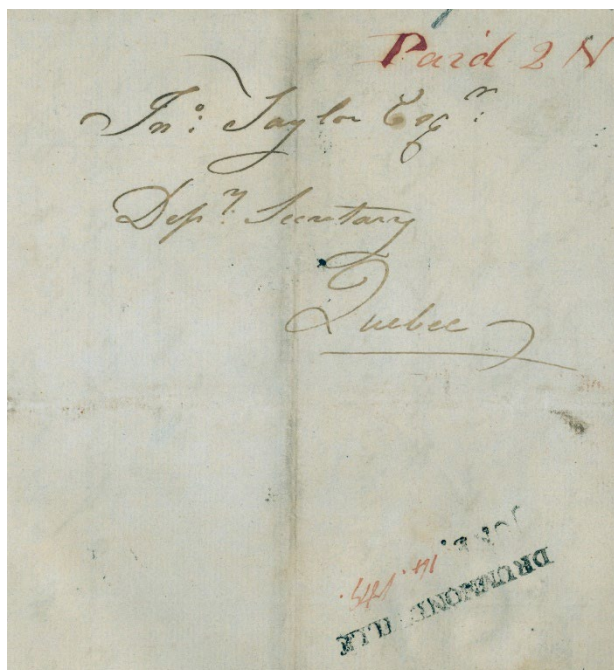 Paid 2 N
Jnº: Taylor Esqʳ.
Depʸ. Secretary
Quebec
DRUMMONDVILLE